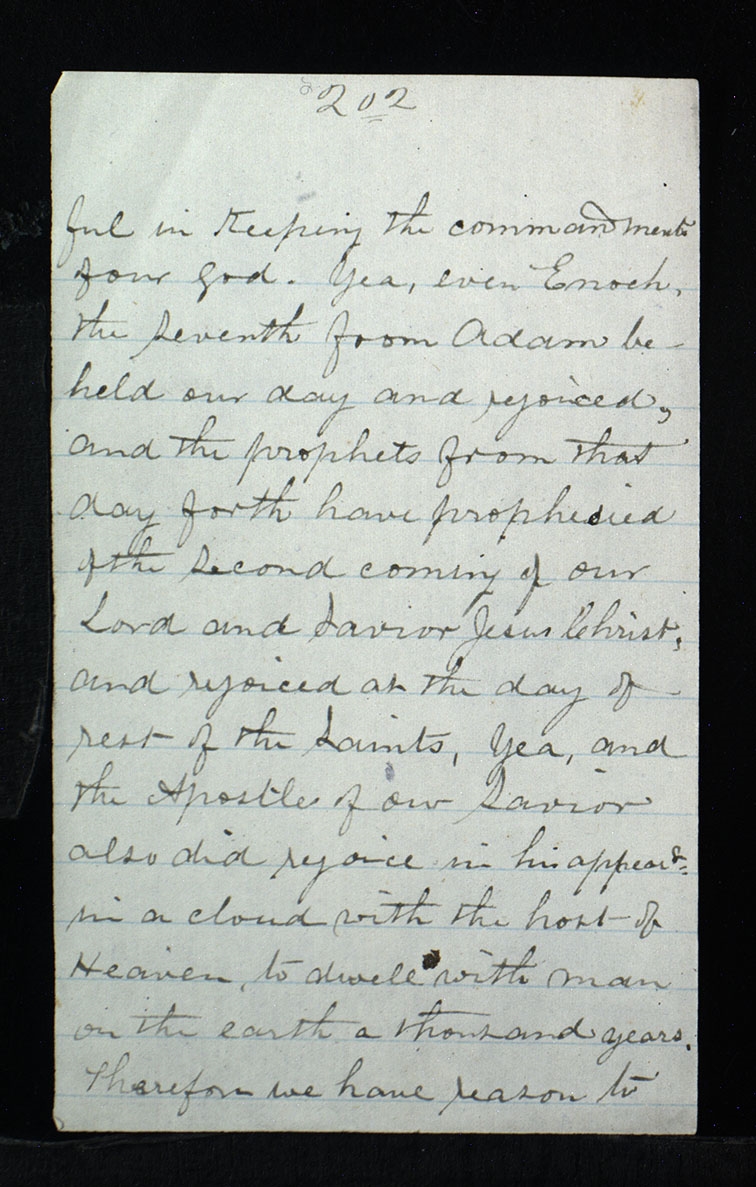 202
ful in Keeping the commandments
of our God. Yea, even Enoch,
the seventh from Adam be-
held our day and rejoiced,
and the prophets from that
day forth have prophesied
of the second coming of our
Lord and Savior Jesus Christ,
and rejoiced at the day of
rest of the Saints, Yea, and
the Apostles of our Savior
also did rejoice in his
in a cloud with the host of
Heaven, to dwell with man
on the earth a thousand years.
Therefore we have reason to